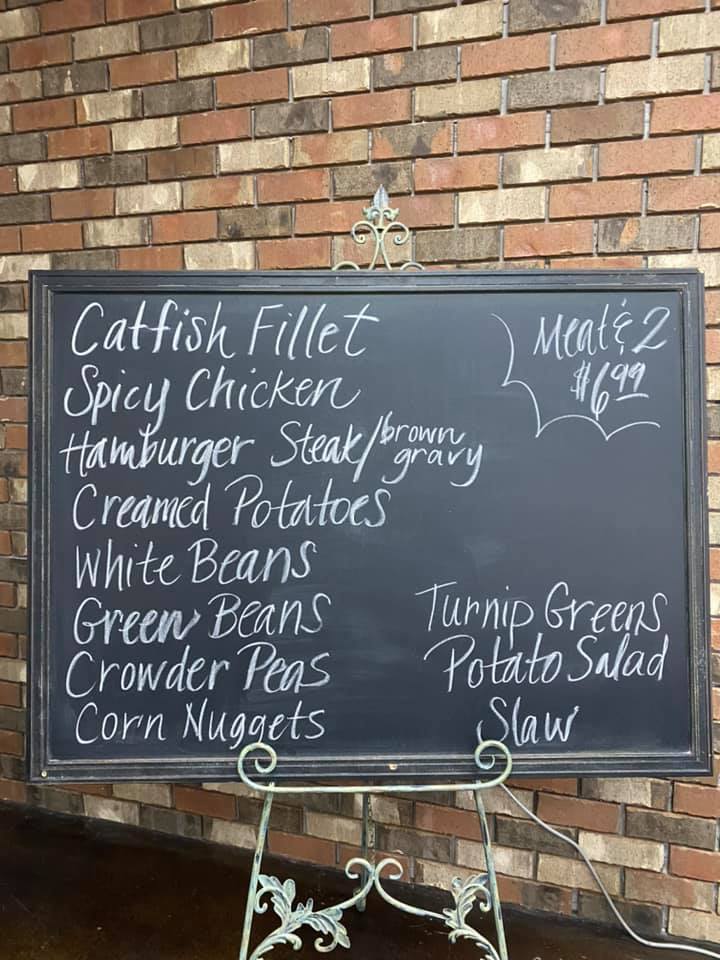 Catfish Fillet
Spicy Chicken
Hamburger Steak/brown gravy
Creamed Potatoes
White Beans
Green Beans
Crowder Peas
Corn Nuggets
Meat & 2
$6.99
Turnip Greens
Potato Salad
Slaw